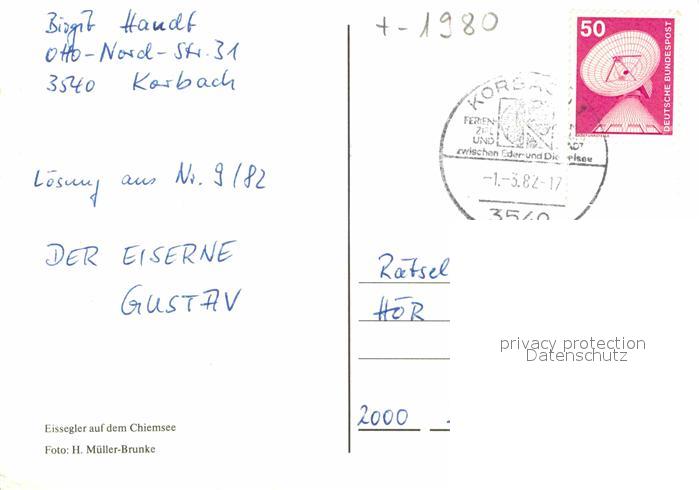 Birgit Handt
Otto-Nord-Str. 31
3540 Korbach
+-1980
50
DEUTSCHE BUNDESPOST
KORBAC
FERIEN-
ZIEL
UND
zwischen Eder- und Diemelsee
-1.-3.82-17
3540
Lösung aus Nr. 9/82
DER EISERNE
GUSTAV
Rätsel
HÖR
privacy protection
Datenschutz
2000
Eissegler auf dem Chiemsee
Foto: H. Müller-Brunke